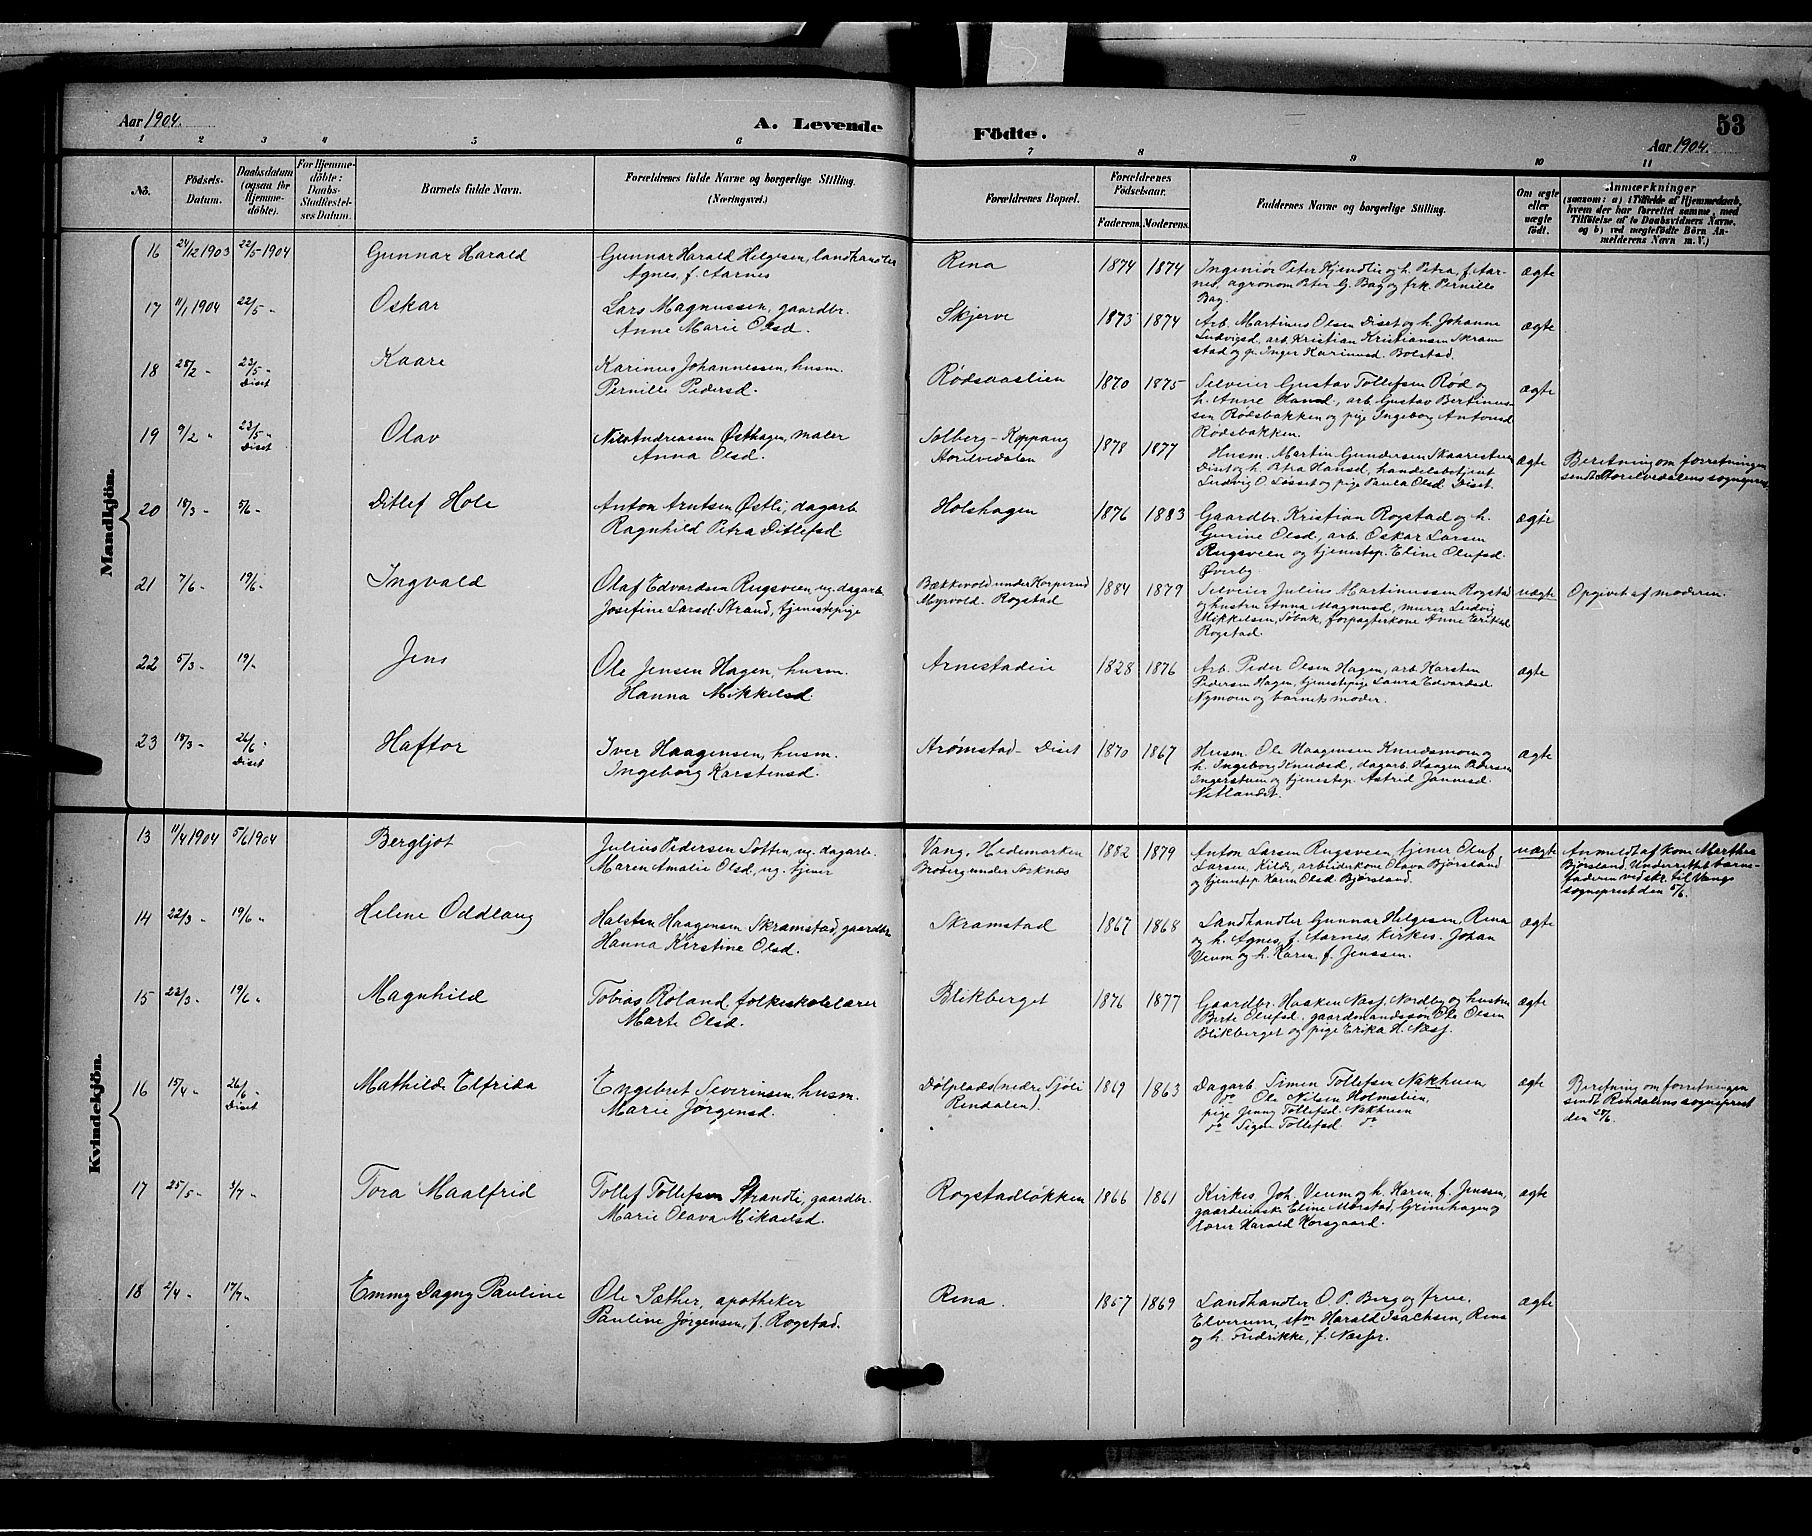 Aar 1904. A. Levende Födte. Aar 1904. 53
1 2 3 4 5 6 7 8 9 10 11
No. Födsels-Datum. Daabsdatum (ogsaa for Hjemmedøbte). For Hjemmedöbte: Daabs-Stadfæstelses Datum. Barnets fulde Navn. Forældrenes fulde Navne og borgerlige Stilling. (Næringsvei.) Forældrenes Bopæl. Forældrenes Födselsaar. Faderens. Moderens. Faddernes Navne og borgerlige Stilling. Om ægte eller uægte födt. Anmærkninger (saasom: a) i Tilfælde af Hjemmedaab, hvem der har forrettet samme, med Tilföielse af to Daabsvidners Navne, og b) ved uægtefödte Börn Anmelderens Navn m. V.)
Mandkjön.
16 24/12 1903 22/5-1904 Gunnar Harald
Gunnar Harald Helgesen, landhandler
Agnes, f. Aarnes
Rena 1874 1874
Ingeniör Peter Kjendlie og h. Petra, f. Aar-
nes, agronom Peter G. Bag og frk. Pernille
Bag.
ægte
17 11/1 1904 22/5- Oskar
Lars Magnussen, gaardbr.
Anne Marie Olsd.
Skjerve 1873 1874
Arb. Martinus Olsen Diset og h. Johanne
Ludvigsd, arb. Kristian Kristiansen Skram
stad og p. Inger Karinusd Bolstad.
ægte
18 28/2 - 23/5- Diset Kaare
Karinus Johannessen, husm.
Pernille Pedersd.
Rödsaaslien 1870 1875
Selveier Gustav Tollefsen Röd og
h. Anne Hansd, arb. Gustav Bertinus-
sen Rödsbakken og pige Ingeborg Antonsd
Rödsbakken.
ægte
19 9/2 " 23/5 " Diset Olav
Nils Andreassen Østhagen, maler
Anna Olsd.
Solberg - Koppang
Storelvedalen
1878 1877
Husm. Martin Gundersen
Diset og h. Petra Hansd, handelsbetjent
Ludvig O. Løsset og pige Paula Olsd. Diset.
ægte
Beretning om forretningen
sendt Storelvedalens sogneprest.
20 18/3 - 5/6- Ditlef Hole
Anton Arntsen Østli, dagarb.
Ragnhild Petra Ditlefsd
Holshagen 1876 1883
Gaardbr. Kristian Rogstad og h.
Gurine Olsd, arb. Oskar Larsen
Rugsveen og tjenestep. Eline Olufsd.
Øverby
ægte
21 7/6- 19/6- Ingvald
Olaf Edvardsen Rugsveen, ug. dagarb.
Josefine Larsd Strand, tjenestepige
Bækkevold under
Myrvold. Rogstad
1884 1879
Selveier Julius Martinussen Rogstad
og hustru Anna Magnusd, murer Ludvig
Mikkelsen, Søbak, forpagterkone Anne Eriksd
Rogstad.
uægte
Opgivet af moderen.
22 5/3- 19/- Jens
Ole Jensen Hagen, husm.
Hanna Mikkelsd.
Arnestadeie 1828 1876
Arb. Peder Olsen Hagen, arb. Karsten
Pedersen Hagen, tjenestepig. Laura Edvardsd
Nymoen og barnets moder.
ægte
23 18/3- 26/6- Diset Haftor
Iver Haagensen, husm.
Ingeborg Karstensd.
Strømstad - Diset 1870 1867
Husm. Ole Haagensen Knudsmoen og
h. Ingeborg Knudsd, dagarb. Haagen Pedersen
Ingerstuen og tjenestep. Astrid Jonnesd.
Netlandet.
ægte
Kvindekjön.
13 11/4 1904 5/6 1904 Bergljot
Julius Pedersen Sotten, ug. dagarb.
Maren Amalie Olsd, ug. tjener
Vang, Hedemarken
Broberg under Torknæs
1882 1879
Anton Larsen Rugsveen, tjener Oluf
Larsen, Kilde, arbeiderkone Olava Bjørsland
og tjenestep. Karen Olsd. Bjørsland.
uægte
Anmeldt af kone Marthea
Bjørsland. Underrettet barne-
faderen ved skr. til Vangs
sogneprest den 5/6.
14 22/3 - 19/6 - Helene Oddlaug
Halsten Haagensen Skramstad, gaardbr.
Hanna Kirstine Olsd.
Skramstad 1867 1868
Landhandler Gunnar Helgesen, Rena
og h. Agnes, f. Aarnes, Kirkes. Johan
Venm og h. Karen, f. Jenssen.
ægte
15 23/3- 19/6- Magnhild
Tobias Roland, folkeskolelærer
Marte Olsd.
Blikberget 1876 1877
Gaardbr. Haaken Næsj. Nordby og hustru
Berte Olufsd. gaardmandssön Ole Olsen
Blikberget og pige Erika H. Næsj.
ægte
16 15/4- 26/6- Diset Mathilde Elfrida
Engebret Severinsen, husm.
Marie Jørgensd.
Dølplads (nedre Sjöli
Rendalen).
1869 1863
Dagarb. Simen Tollefsen Nakhuen
do Ole Nilsen Holmslien,
pige Jenny Tollefsd. Nakhuen
do Signe Tollefsd do
ægte
Beretning om forretningen
sendt Rendalens sogneprest
den 27/6.
17 25/5- 3/7- Tora Maalfrid
Tollef Tollefsen Strandli, gaardbr.
Marie Olava Mikaelsd.
Rogstadløkken 1866 1861
Kirkes. Joh. Venm og h. Karen, f. Jenssen,
gaardeierske Eline Mørstad, Grinihagen og
lærer Harald Korsgaard.
ægte
18 2/4 - 17/7- Emmy Dagny Pauline
Ole Sæther, apotheker
Pauline Jørgensen, f. Rogstad.
Rena. 1857 1869
Landhandler O. P. Berg og frue,
Elverum, stm Harald Isachsen, Rena
og h. Fredrikke, f. Næsje.
ægte